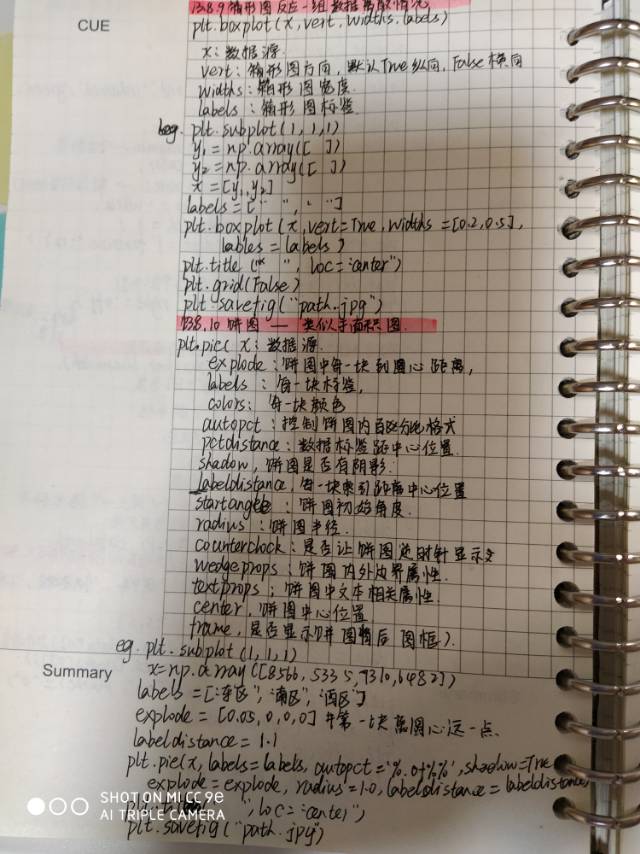 CUE
13.8.9 箱形图反应一组数据离散情况
plt.boxplot(x,vert,widths,labels)
x:数据源.
vert:箱形图方向,默认True纵向,False横向
widths:箱形图宽度.
labels:箱形图标签
eg. plt.subplot(1,1,1)
y₁=np.array([ ])
y₂=np.array([ ])
x=[y₁,y₂]
labels=[" "," "]
plt.boxplot(x,vert=True,widths=[0.2,0.5],
lables=labels)
plt.title(" ",loc="center")
plt.grid(False)
plt.savefig("path.jpg")
13.8.10 饼图 — 类似于面积图.
plt.pie( x:数据源.
explode:饼图中每一块到圆心距离,
labels:每一块标签,
colors:每一块颜色
autopct:控制饼图内百分比格式
pctdistance:数据标签距中心位置
shadow,饼图是否有阴影.
labeldistance,每一块索引距离中心位置
startangle:饼图初始角度.
radius:饼图半径.
counterclock:是否让饼图逆时针显示
wedgeprops:饼图内外边界属性.
textprops:饼图中文本相关属性.
center,饼图中心位置
frame,是否显示饼图背后图框).
eg. plt.subplot(1,1,1)
Summary
x=np.array([8566,5335,7310,6482])
labels=["东区","南区","西区"]
explode=[0.05,0,0,0] #第一块离圆心远一点.
labeldistance=1.1
plt.pie(x,labels=labels,autopct='%.0f%%',shadow=True
explode=explode,radius=1.0,labeldistance=labeldistance,
",loc="center")
plt.savefig("path.jpg")
SHOT ON MI CC 9e
AI TRIPLE CAMERA